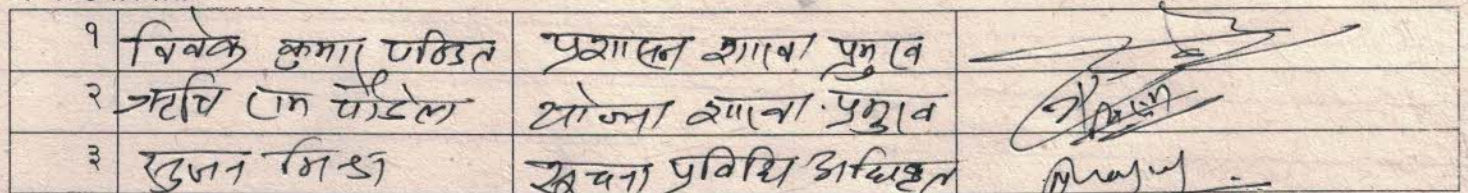 १ विवेक कुमार पण्डित प्रशासन शाखा प्रमुख
२ ऋषि राम पौडेल योजना शाखा प्रमुख
३ सुजन मिश्र सूचना प्रविधि अधिकृत